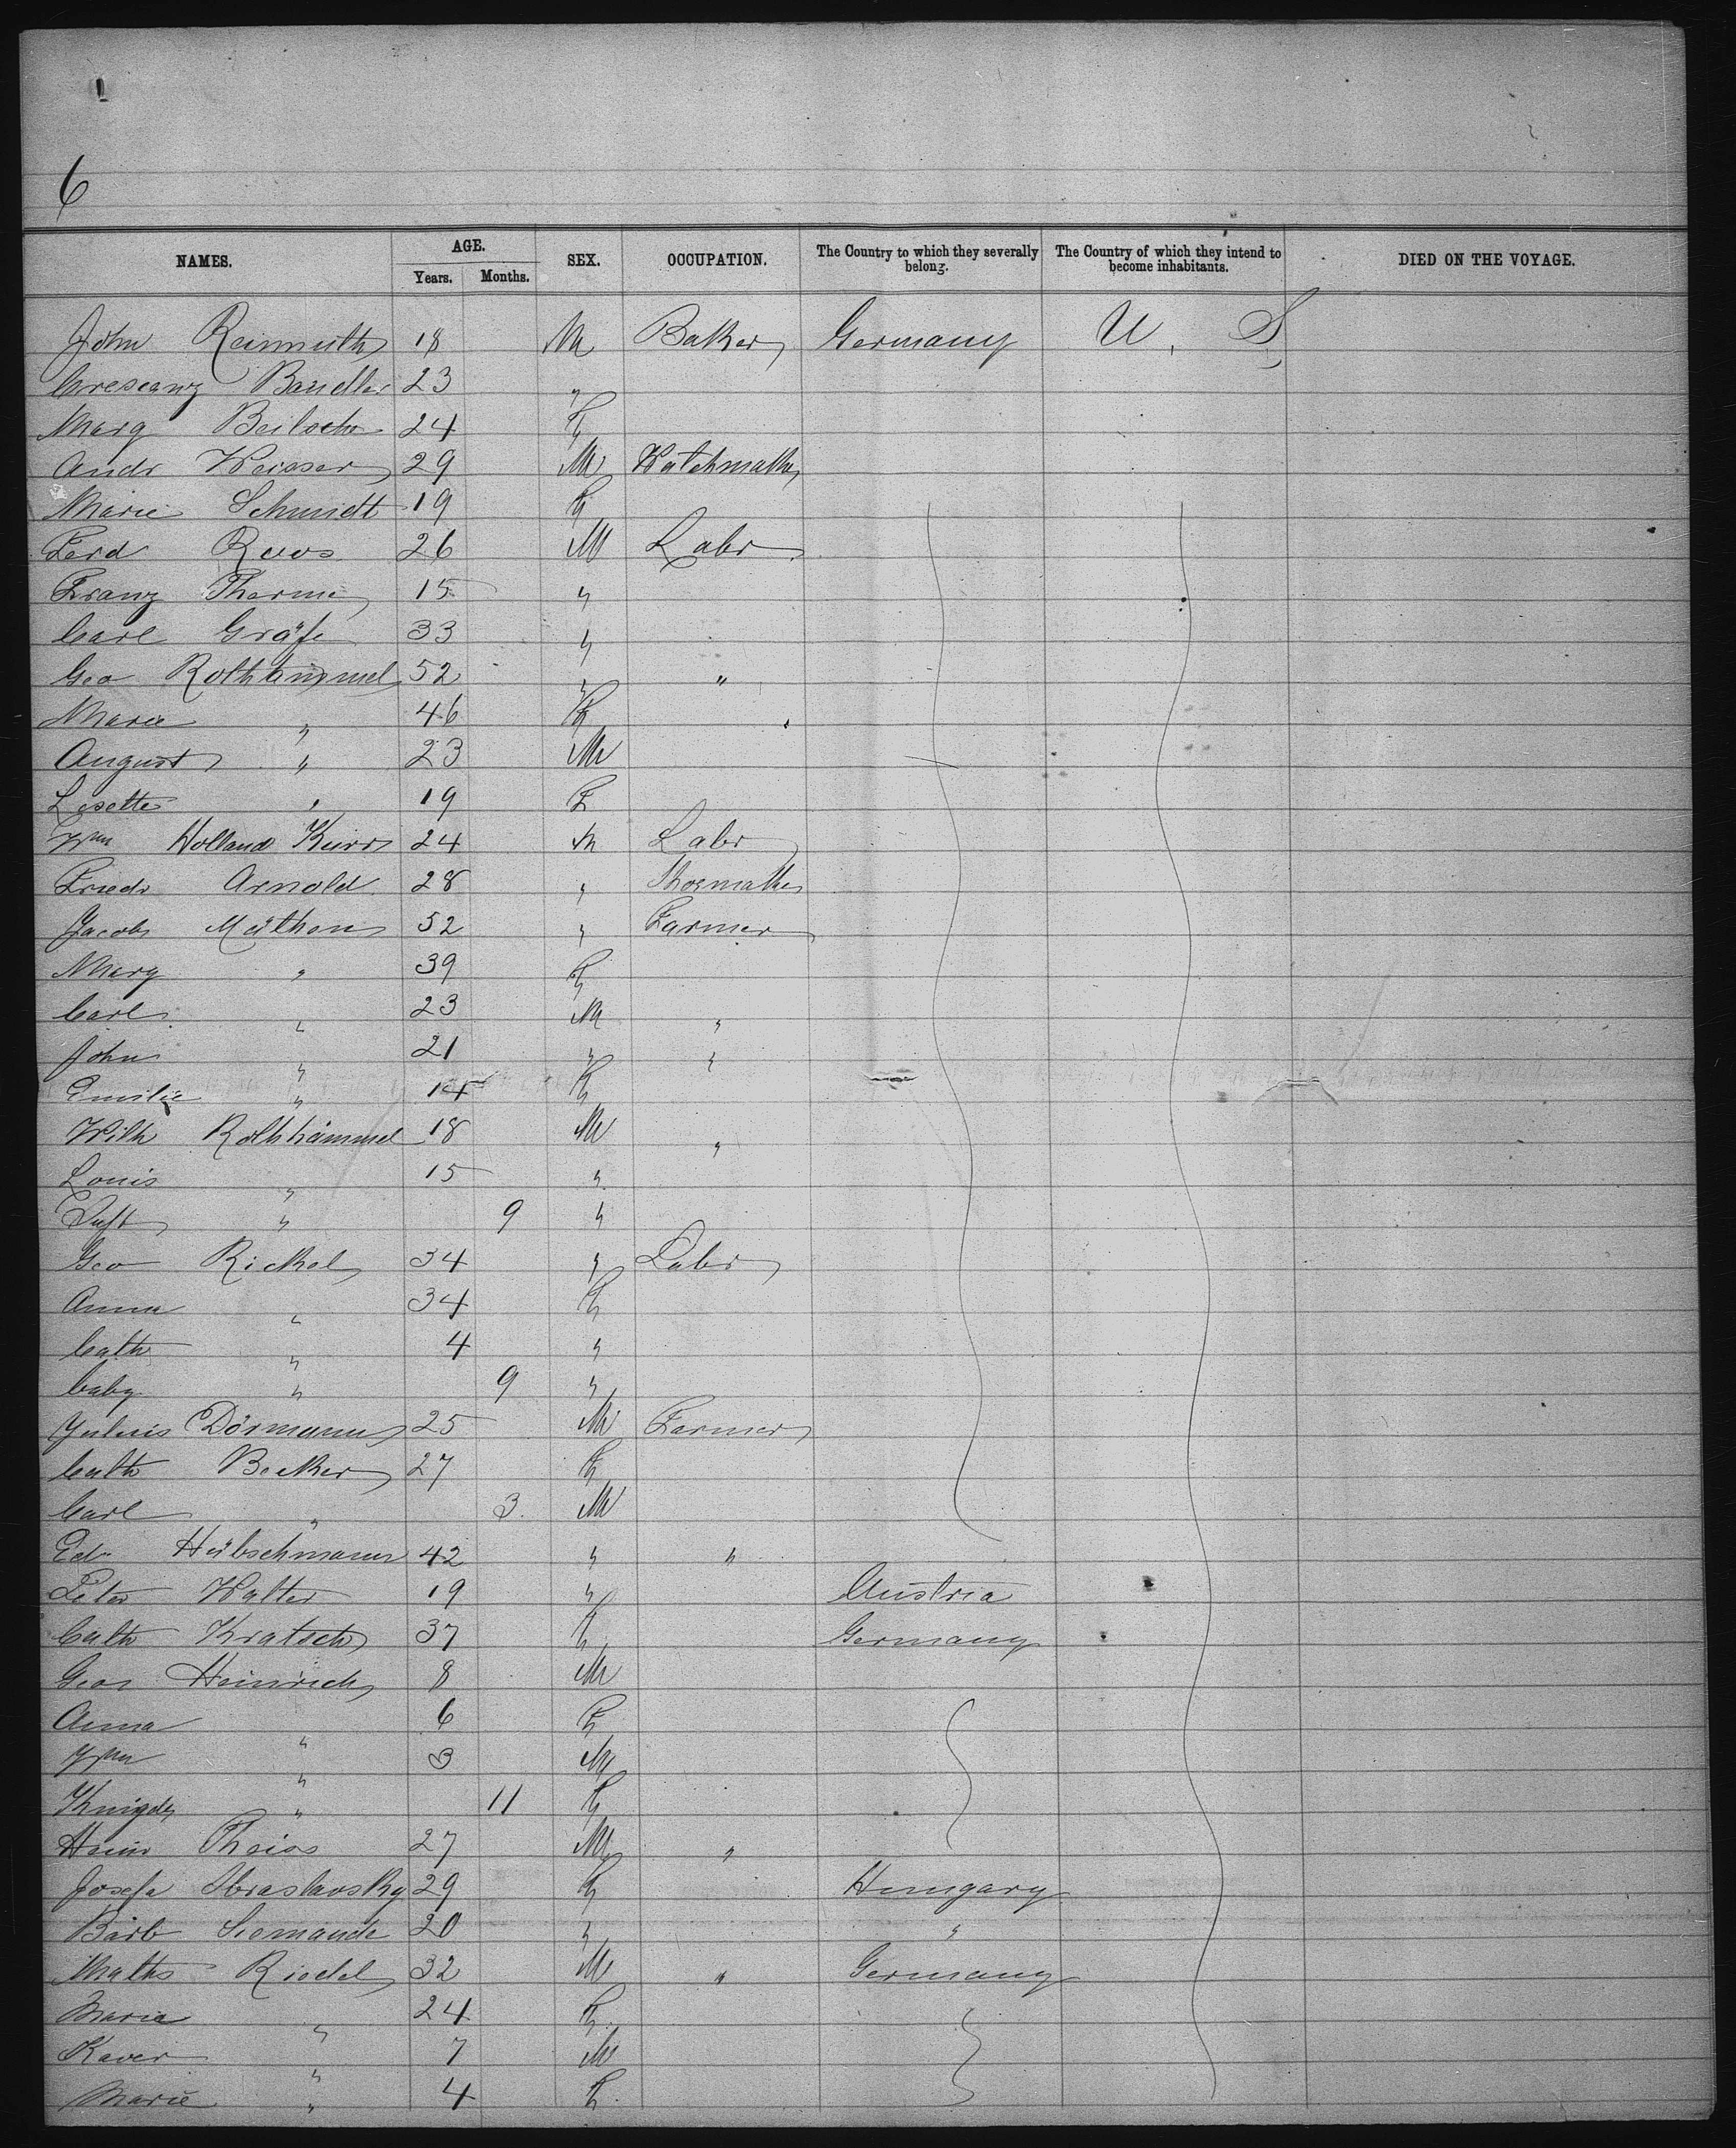 6
NAMES. AGE. Years. Months. SEX. OCCUPATION. The Country to which they severally belong. The Country of which they intend to become inhabitants. DIED ON THE VOYAGE.
John Reinmuth 18 M Baker Germany U. S
Crescanz Bandler 23 "
Marg 24 F
Andr Weisser 29 M Watchmaker
Marie Schmidt 19 F
Ferd Roos 26 M Labr
Franz Therme 15 "
Carl Gräfe 33 "
Geo Rothhämmel 52 " "
Maria " 46 F
August " 23 M
Lisette " 19 F
Wm Holland Kurr 24 M Labr
Friedr Arnold 28 " Shoemaker
Jacob Müthen 52 " Farmer
Marg " 39 F
Carl " 23 M "
John " 21 " "
Emilie " 14 F
Wilh Rothhämmel 18 M "
Louis " 15 "
" 9 "
Geo Rickel 34 " Labr
Anna " 34 F
Cath " 4 "
baby " 9 "
Julius Dörmann 25 M Farmer
Cath Becker 27 F
Carl " 3 M
Ed Hübschmann 42 " "
Peter Walter 19 " Austria
Cath Kratsch 37 F Germany
Geo Heinrich 8 M
Anna " 6 F
Wm " 3 M
" 11 F
Heinr Theiss 27 M "
Josefa 29 F Hungary
Barb 20 " "
Maths Riedel 32 M " Germany
Maria " 24 F
Xaver " 7 M
Marie " 4 F